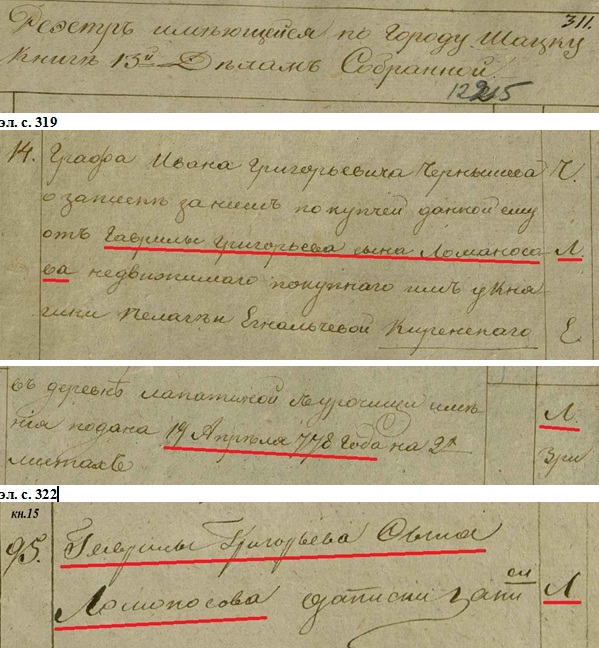 311.
Реэстръ имѣющейся по Городу Шацку
Книгѣ 15й Дѣламъ Собранной.
1225
эл. с. 319
14. Графа Ивана Григорьевича Чернышева Ч.
о запискѣ за нимъ по купчей данной ему
отъ Гаврилы Григорьева сына Ломаносо Л.
ва недвижимаго покупнаго имъ у Кня
гини Пелагѣи Енгалычевой Е
въ деревнѣ лапатиной урочищи имѣ
нія подана 19 Апрѣля 778 года на 2х Л.
листахъ Зри
эл. с. 322
кн.15
95. Гаврилы Григорьева Сына
Ломоносова записки Л